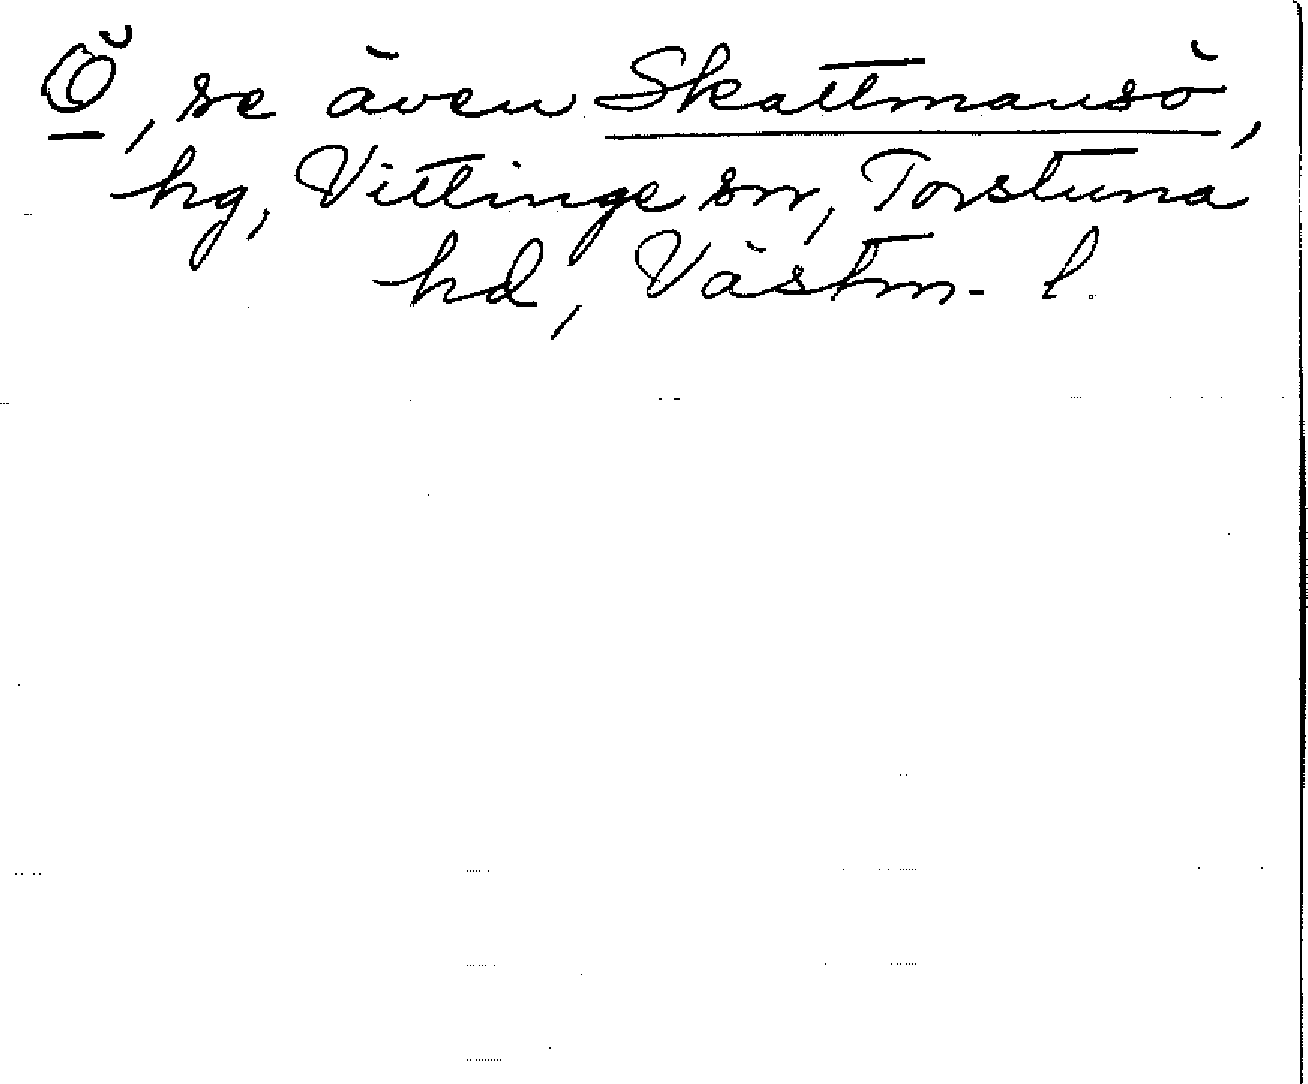 Ö, se även Skattmansö,
hg, Vittinge sn, Torstuna
hd, Västm. l.